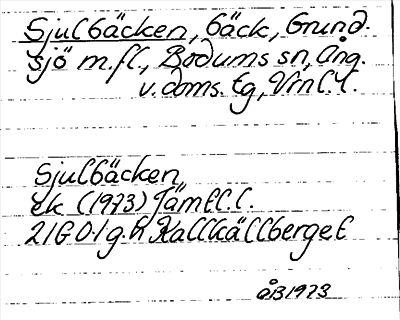 Sjulbäcken, bäck, Grund-
sjö m.fl., Bodums sn, Ång.
v.doms. tg, Vrnl.l.
Sjulbäcken
ek (1973) Jämtl.l.
21G 0-1 g.h Kallkällberget
åB 1973